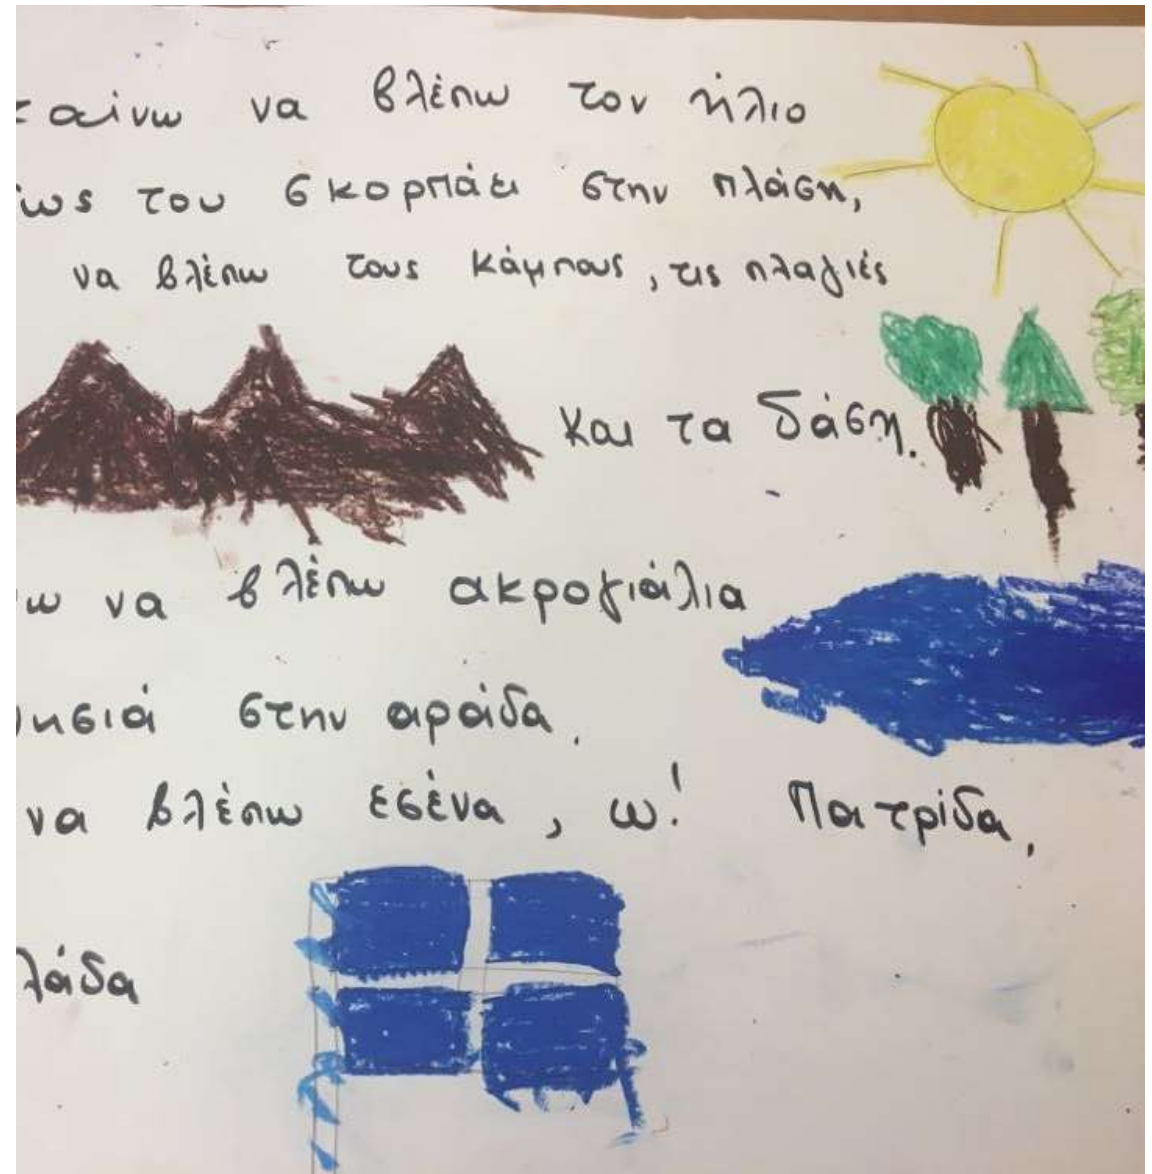 ταίνω να βλέπω τον ήλιο
ως του σκορπάει στην πλάση,
να βλέπω τους κάμπους, τις πλαγιές
και τα δάση.
ω να βλέπω ακρογιάλια
νησιά στην αράδα.
να βλέπω εσένα, ω! Πατρίδα,
λάδα